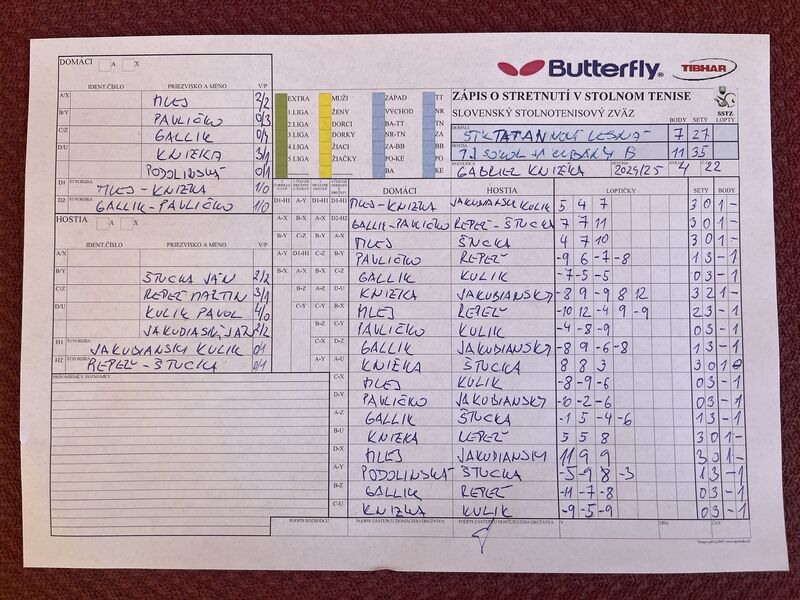 DOMÁCI A X
Butterfly TIBHAR
IDENT.ČÍSLO PRIEZVISKO A MENO V/P
A/X MLEJ 2/2
B/Y PAVLIČKO 0/3
C/Z GALLIK
D/U KNIEŽKA 3/1
PODOLINSKÝ
D1 ŠTVORHRA MLEJ - KNIEZKA 1/0
D2 ŠTVORHRA GALLIK - PAVLIČKO 1/0
EXTRA MUŽI ZÁPAD TT
1.LIGA ŽENY VÝCHOD NR
2.LIGA DORCI BA-TT TN
3.LIGA DORKY NR-TN ZA
4.LIGA ŽIACI ZA-BB BB
5.LIGA ŽIAČKY PO-KE PO
BA KE
ZÁPIS O STRETNUTÍ V STOLNOM TENISE
SLOVENSKÝ STOLNOTENISOVÝ ZVÄZ SSTZ
BODY SETY LOPTY
DOMÁCI STK TATRAN 7 27
HOSTIA TJ SOKOL B 11 35
ROZHODCA GABRIEL KNIEZKA 2024/25 4 22
HOSTIA A X
IDENT.ČÍSLO PRIEZVISKO A MENO V/P
A/X
B/Y ŠTUCKA JÁN 2/2
C/Z REPEŤ MARTIN 3/1
D/U KULIK PAVOL 4/0
JAKUBIANSKÝ JÁN 2/2
H1 ŠTVORHRA JAKUBIANSKY KULIK 0/1
H2 ŠTVORHRA REPEŤ - ŠTUCKA 0/1
PRIPOMIENKY, POZNÁMKY
DOMÁCI HOSTIA LOPTIČKY SETY BODY
D1-H1 MLEJ - KNIEZKA JAKUBIANSKY KULIK 5 4 7 3 0 1 -
D2-H2 GALLIK - PAVLIČKO REPEŤ - ŠTUCKA 7 7 11 3 0 1 -
A-X MLEJ ŠTUCKA 4 7 10 3 0 1 -
B-Y PAVLIČKO REPEŤ -9 6 -7 -8 1 3 - 1
C-Z GALLIK KULIK -7 -5 -5 0 3 - 1
D-U KNIEZKA JAKUBIANSKÝ -8 9 -9 8 12 3 2 1 -
B-X MLEJ REPEŤ -10 12 -4 9 -9 2 3 - 1
PAVLIČKO KULIK -4 -8 -9 0 3 - 1
GALLIK JAKUBIANSKÝ -8 9 -6 -8 1 3 - 1
A-U KNIEZKA ŠTUCKA 8 8 3 3 0 1
C-X MLEJ KULIK -8 -9 -6 0 3 - 1
D-Y PAVLIČKO JAKUBIANSKÝ -10 -2 -6 0 3 - 1
A-Z GALLIK ŠTUCKA -1 5 -4 -6 1 3 - 1
B-U KNIEZKA REPEŤ 5 5 8 3 0 1 -
D-X MLEJ JAKUBIANSKY 11 9 9 3 0 1 -
A-Y PODOLINSKÝ ŠTUCKA -5 -9 8 -3 1 3 - 1
B-Z GALLIK REPEŤ -11 -7 -8 0 3 - 1
C-U KNIEZKA KULIK -9 -5 -9 0 3 - 1
PODPIS ROZHODCU PODPIS ZÁSTUPCU DOMÁCEHO DRUŽSTVA PODPIS ZÁSTUPCU HOSŤUJÚCEHO DRUŽSTVA V DŇA ČAS